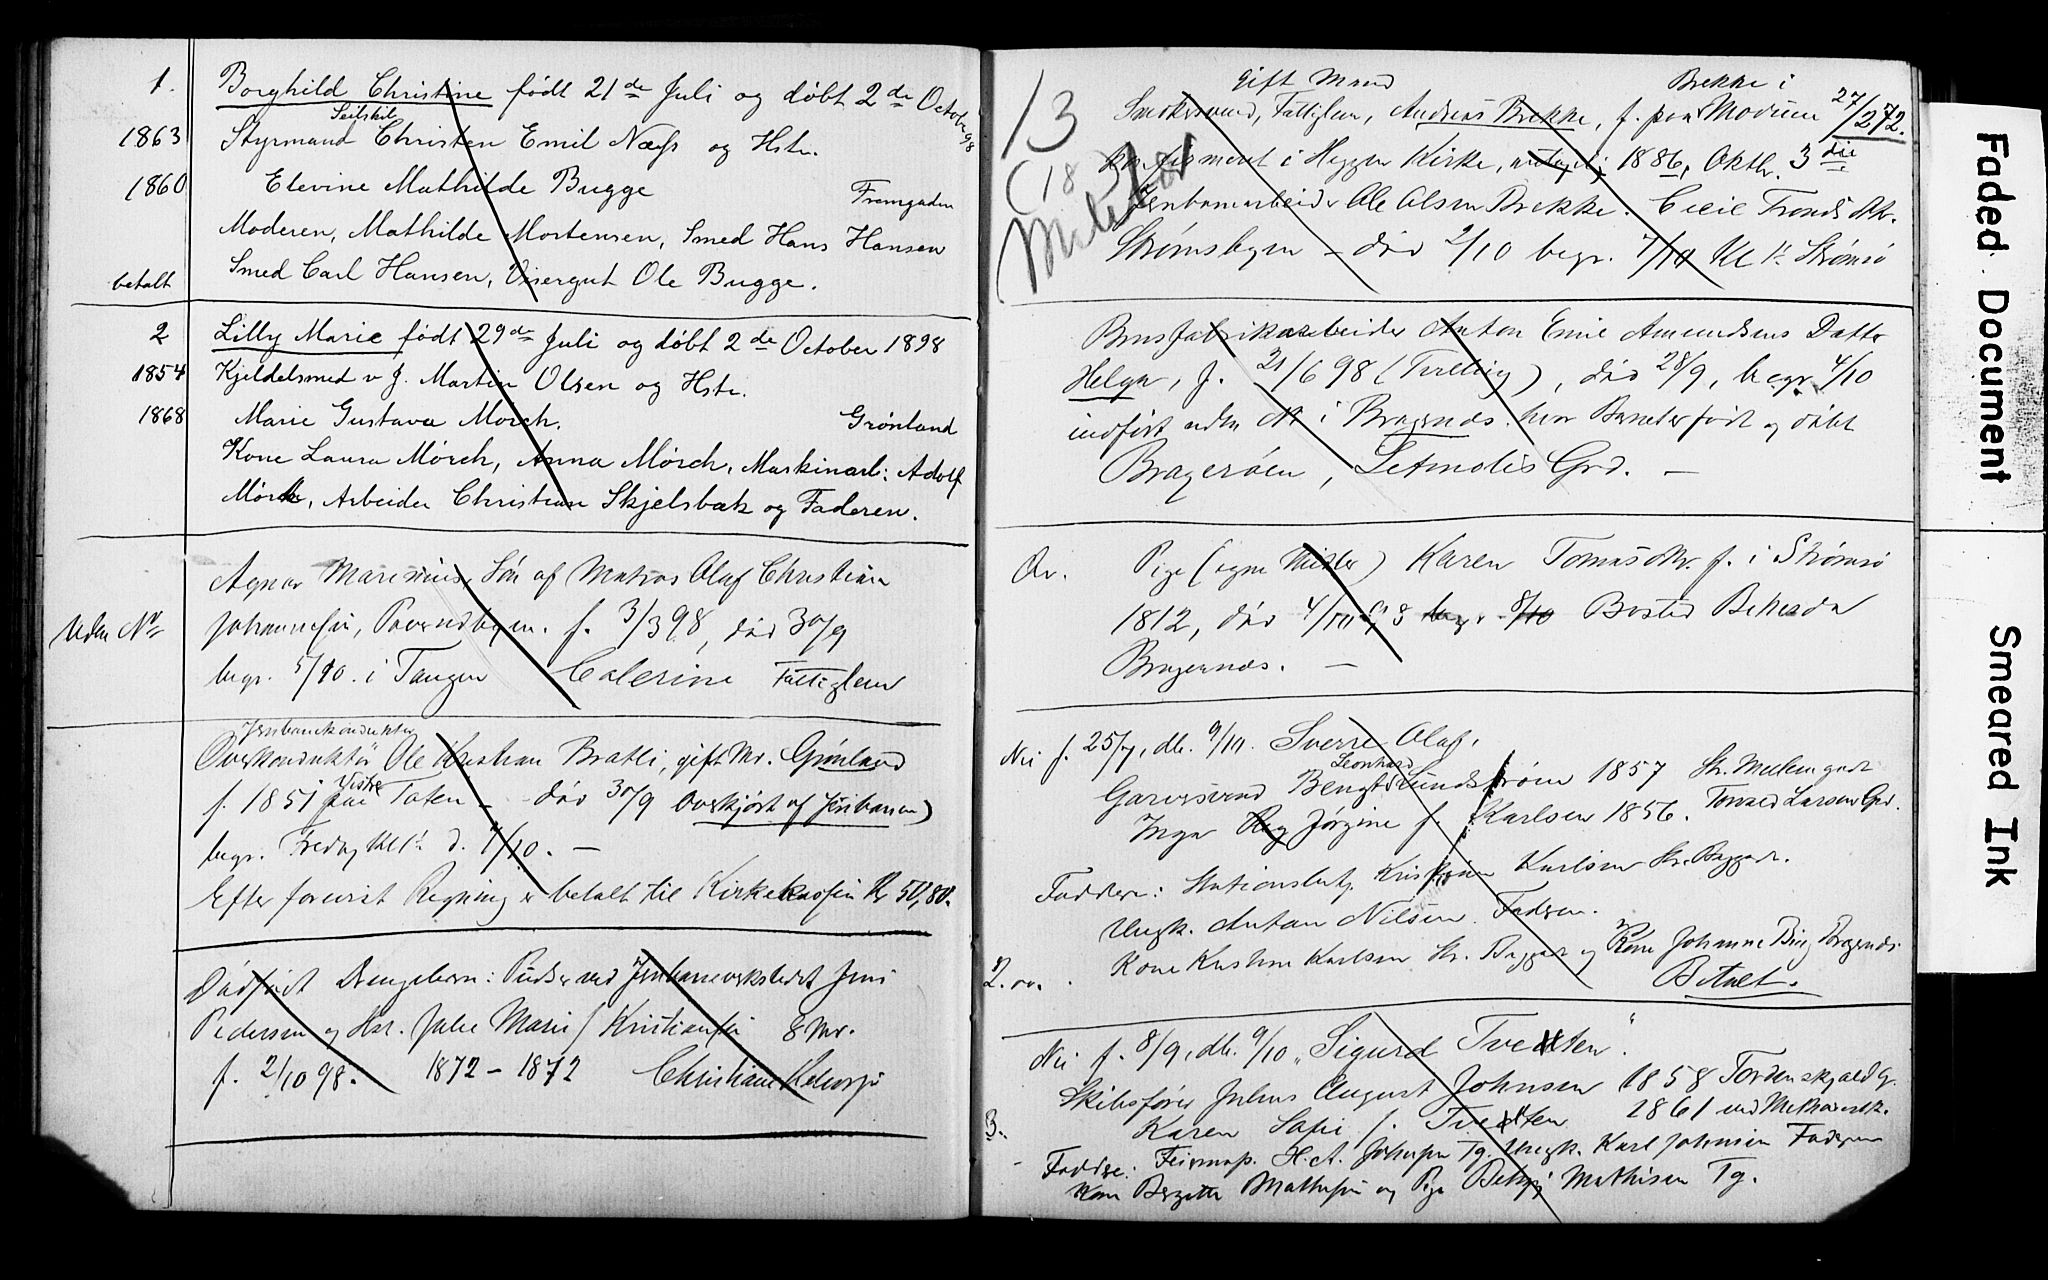 1. Borghild Christine født 21de Juli og døbt 2de October 98
Seilskib
1863 Styrmand Christen Emil Næss og Hstr.
1860 Elevine Mathilde Bugge Fremgaden
Moderen, Mathilde Mortensen, Smed Hans Hansen
betalt Smed Carl Hansen, Visergut Ole Bugge.
2 Lilly Marie født 29de Juli og døbt 2de October 1898
1854 Kjeldelsmed v J. Martin Olsen og Hstr.
1868 Marie Gustava Mörch. Grønland
Kone Laura Mörch, Anna Mörch, Maskinarb: Adolf
Mörch, Arbeider Christian Skjelsbæk og Faderen.
Agnar Marinius, Søn af Matros Olaf Christian
Uden No Johannesen, f. 3/3 98, død 30/9
begr. 5/10. i Tangen Catrine Fattiglem
Jernbanekonduktør
Overkonduktør Ole Kristian Bratli, gift Mr. Grønland
Vestre
f. 1851 paa Toten - død 30/9 Overkjørt af Jernbanen)
begr. Fredag Kl 1 d. 7/10. —
Efter forevist Regning er betalt til Kirkekassen Kr 50,80.
Dødfødt Drengebarn: Pudser ved Jernbaneverkstedet Jens
Pedersen og Hstr. Julie Marie f Kristiansen 8 Mr.
f. 2/10 98. 1872 - 1872 Christiane
gift Mand Brekke i
13 Fattiglem, Andreas Brekke, f. paa Modum 27/2 72.
(18) Konfirmeret i Heggen Kirke, 1886, Oktbr. 3die
Militær Jernbanarbeider Ole Olsen Brekke. Cecil Tronds Dtr.
Strømsbyen - død 2/10 begr. 7/10 Kl 1 Strømsø
Brusfabrikarbeider Anton Emil Amundsens Datter
Helga, f. 21/6 98 (Tvilling), død 28/9, begr. 4/10
indført uden No i Bragernæs. hvor Barnet er født og døbt
Bragerøen, Grd. —
Ov. Pige (egne Midler) Karen Tomasdtr. f. i Strømsø
1812, død 4/10 98 begr 8/10 Bosted Betesda
Bragernæs. —
Nei f. 25/7, db. 9/10. Sverre Olaf.
Leonhard
Garversvend Bengt Sundstrøm 1857 Str. Melemgade
Inga Jørgine f. Karlsen 1856. Tomas Larsen Grd.
Faddere: Stationsbetj. Kristian Karlsen Str. Baggade.
Ungk. Anton Nilsen. Faderen.
Kone Kristine Karlsen Str. Baggade og Kone Johanne Bragernæs
2. Betalt.
Nei f. 8/9, db. 9/10 "Sigurd Tvedten".
Skibsfører Julius August Johnsen 1858 Tordenskjoldg.
3. Karen Sofie f. Tvedten 1861
Faddre: H. A. Johnsen Tg. Ungk. Karl Johnsen Faderen
Kone Mathisen og Pige Betsy Mathisen Tg.
Faded Document
Smeared Ink